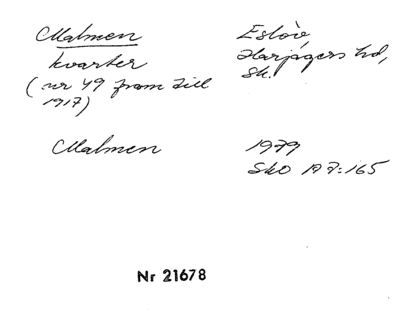 Malmen Eslöv,
kvarter Harjagers hd,
(nr 49 fram till Sk.
1917)
Malmen 1979
SkO A 7:165
Nr 21678